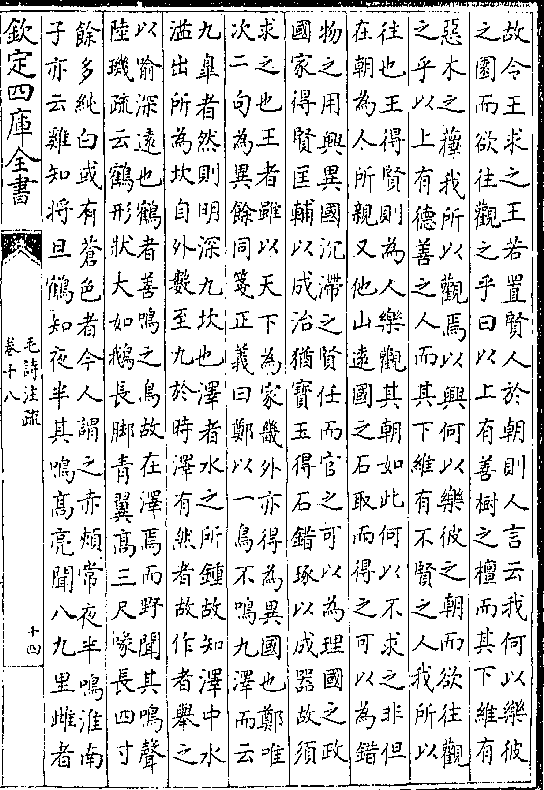 故令王求之王若置賢人於朝則人言云我何以樂彼
之園而欲往觀之乎曰以上有善樹之檀而其下維有
惡木之蘀我所以觀焉以興何以樂彼之朝而欲往觀
之乎以上有德善之人而其下維有不賢之人我所以
往也王得賢則為人樂觀其朝如此何以不求之非但
在朝為人所親又他山遠國之石取而得之可以為錯
物之用興異國沉滯之賢任而官之可以為理國之政
國家得賢匡輔以成治猶寳玉得石錯琢以成器故須
求之也王者雖以天下為家畿外亦得為異國也鄭唯
次二句為異餘同箋正義曰鄭以一鳥不鳴九澤而云
九臯者然則明深九坎也澤者水之所鍾故知澤中水
溢出所為坎自外數至九於時澤有然者故作者舉之
以喻深遠也鶴者善鳴之鳥故在澤焉而野聞其鳴聲
陸璣疏云鶴形狀大如鵝長脚青翼髙三尺喙長四寸
餘多純白或有蒼色者今人謂之赤頰常夜半鳴淮南
子亦云雞知将旦鶴知夜半其鳴髙亮聞八九里雌者
欽定四庫全書
毛詩注疏
卷十八
十四